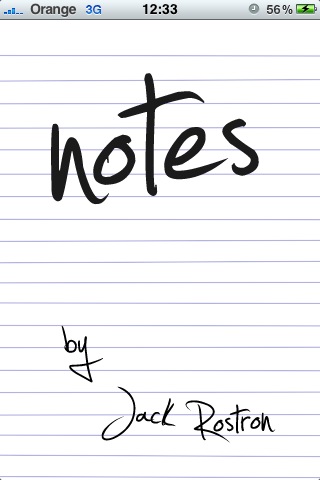 Orange 3G 12:33 56%
notes
by
Jack Rostron